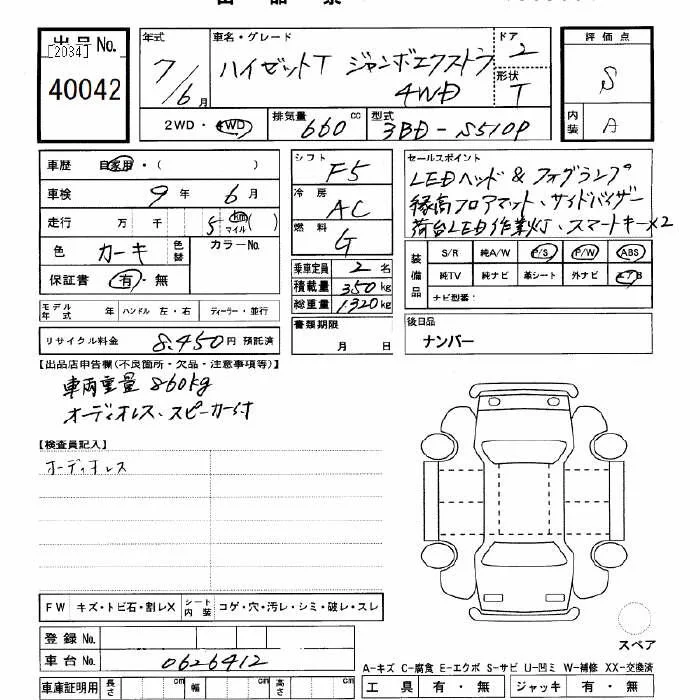 出品票
出品No.
[2034]
40042
年式
7/6月
車名・グレード
ハイゼットT ジャンボエクストラ
4WD
ドア
2
形状
T
評価点
S
内装
A
2WD・4WD
排気量
660cc
型式
3BD-S510P
車歴 自家用・( )
車検 9年 6月
走行 万 千 5 km マイル ( )
色 カーキ 色替 カラーNo.
保証書 有・無
シフト
F5
冷房
AC
燃料
G
乗車定員 2名
積載量 350kg
総重量 1320kg
書類期限
月 日
セールスポイント
LEDヘッド & フォグランプ
縁高フロアマット、サイドバイザー
荷台LED作業灯、スマートキー×2
装備品
S/R 純A/W P/S P/W ABS
純TV 純ナビ 革シート 外ナビ エアB
ナビ型番:
モデル年式 年 ハンドル 左・右 ディーラー・並行
リサイクル料金 8,450円 預託済
後日品
ナンバー
【出品店申告欄(不良箇所・欠品・注意事項等)】
車両重量 860kg
オーディオレス、スピーカー付
【検査員記入】
オーディオレス
FW キズ・トビ石・割レX シート内装 コゲ・穴・汚レ・シミ・破レ・スレ
登録No.
車台No. 0626412
車庫証明用 長さ cm 幅 cm 高さ cm
スペア
A-キズ C-腐食 E-エクボ S-サビ U-凹ミ W-補修 XX-交換済
工具 有・無 ジャッキ 有・無